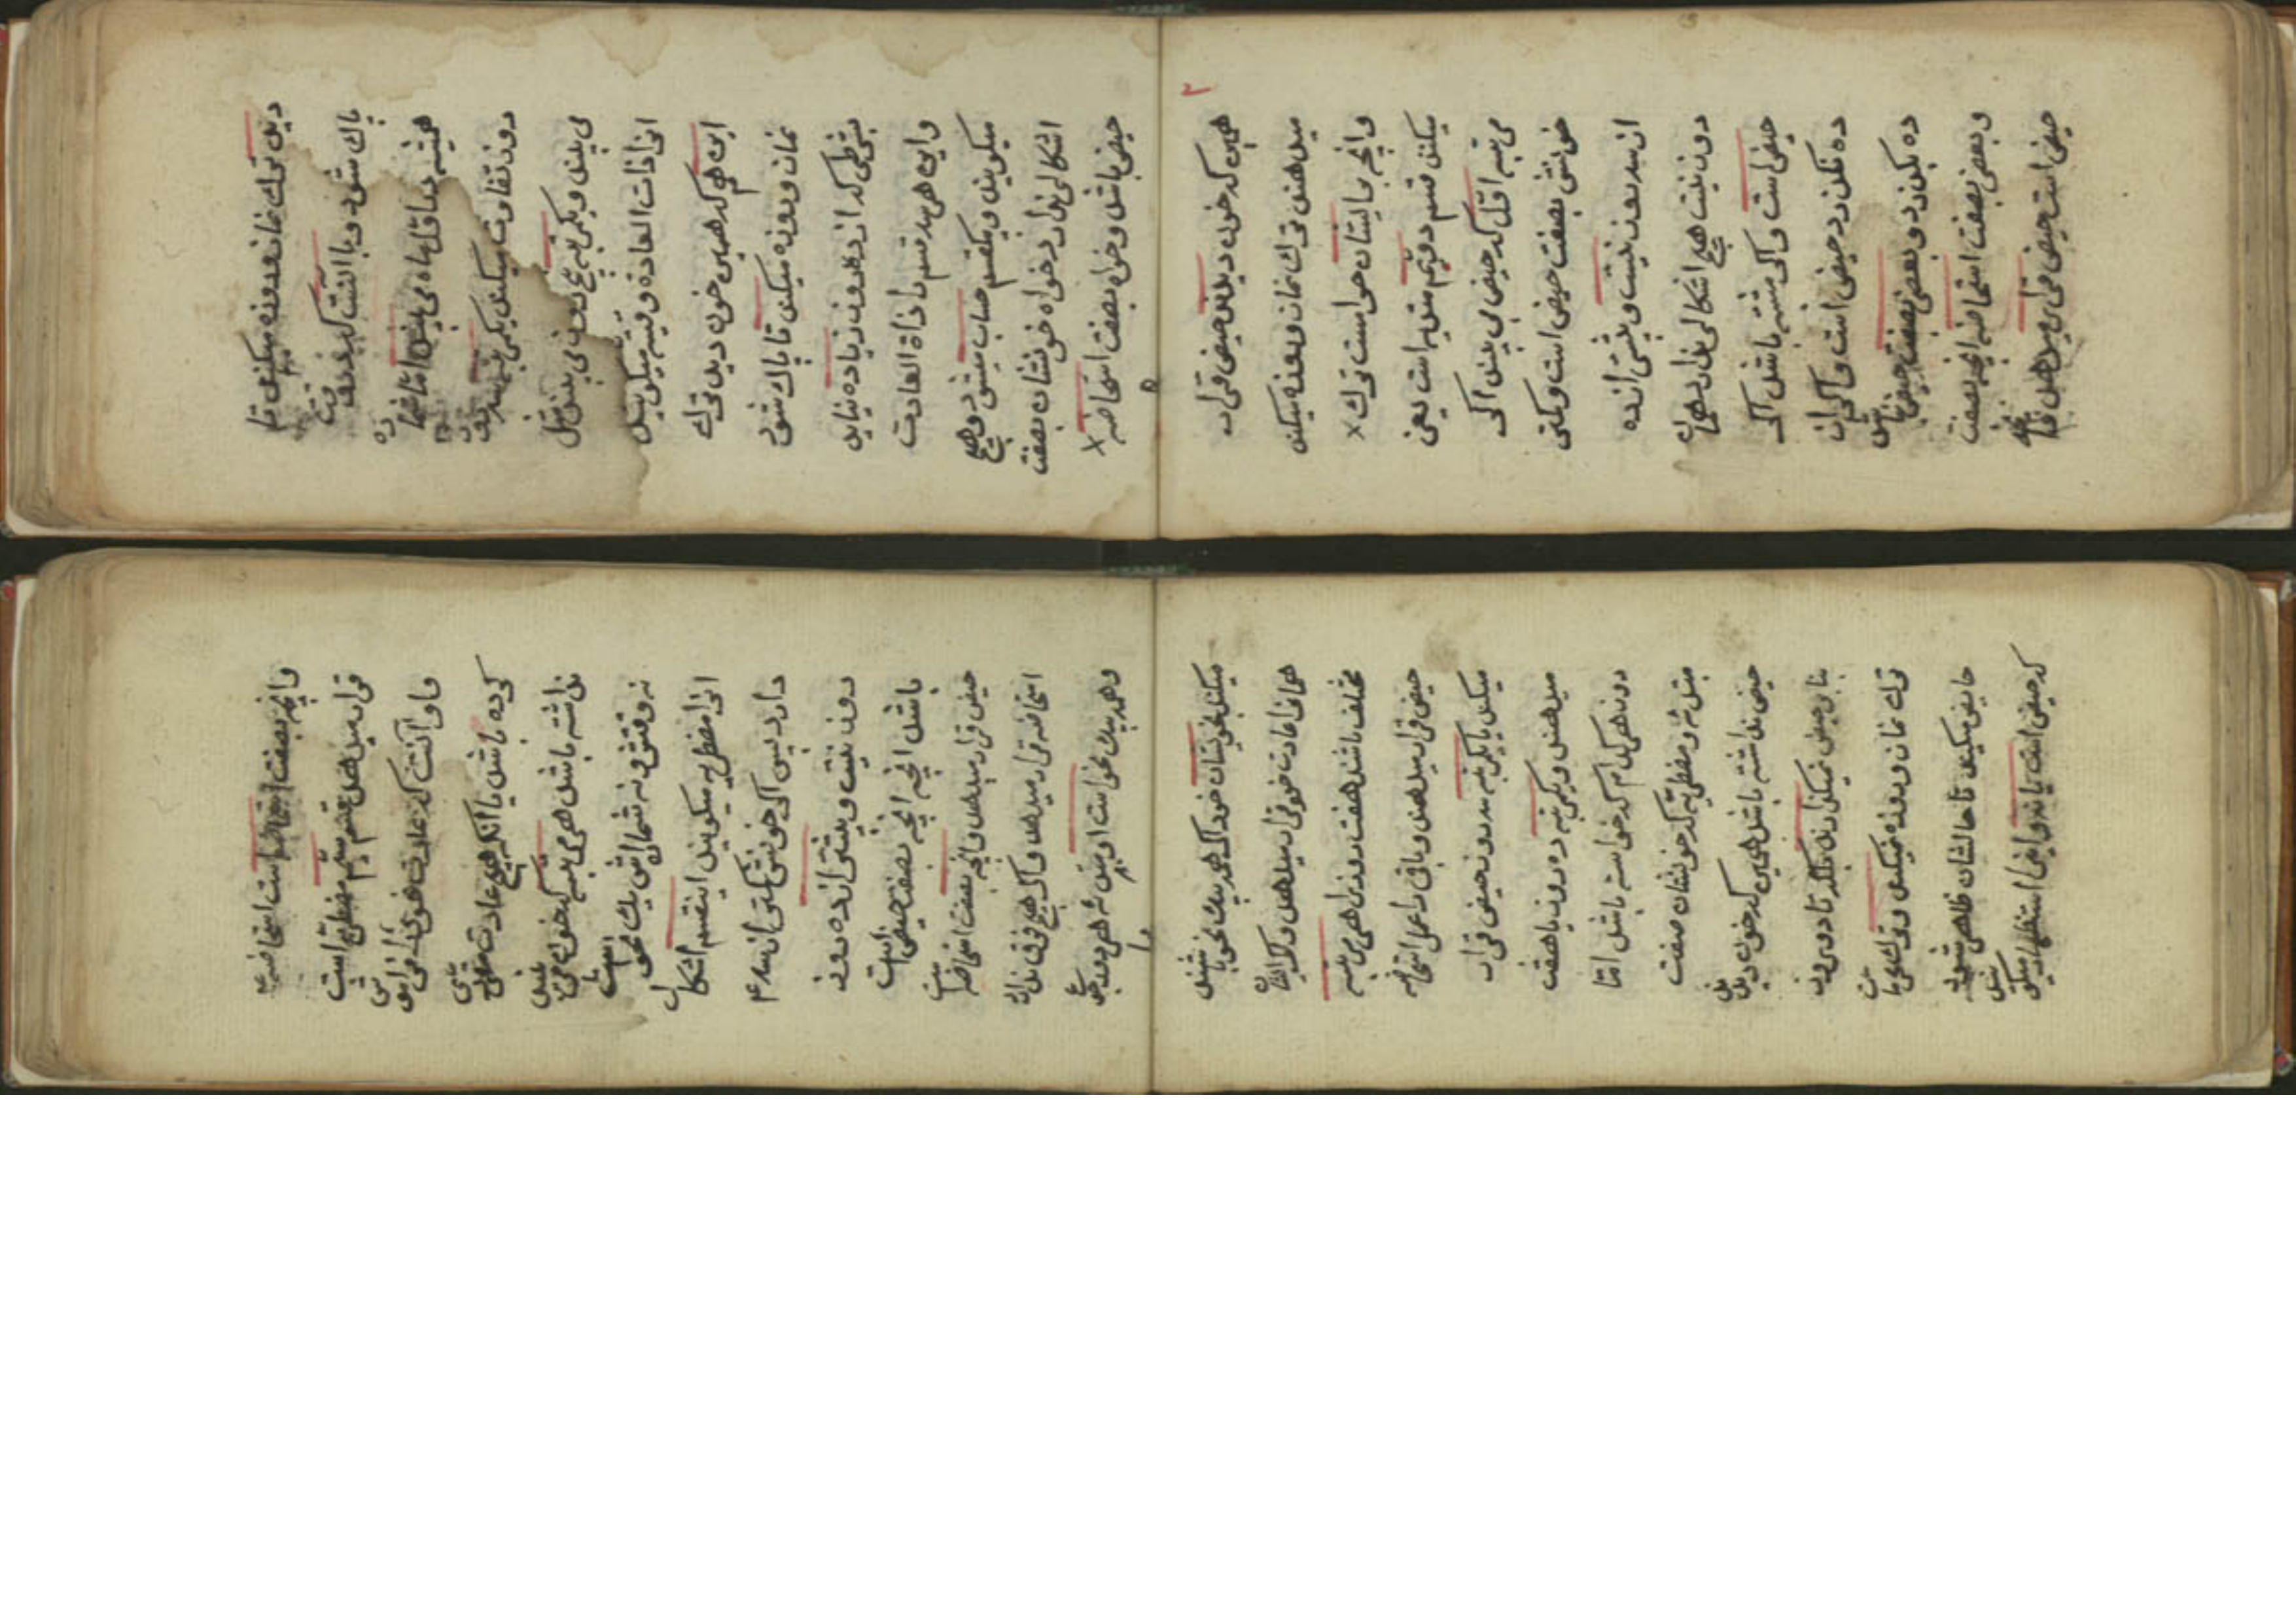 دیدن ترك نماز و روزه میکند تا
پاك شود و یا آنست که
همیشه در اول ماه می بیند اما عدد
روز تفاوت میکند یکمرتبه سه روز
می بیند و یکمرتبه پنج روز می بیند مثل
انرا ذات العادة وقتیه میکویند
این هم که همین خون دید ترك
نماز و روزه میکند تا پاك شود
بشرطی که از ده روز زیاده نیاید
و این هر سه قسم را ذاة العادت
میکویند و یکقسم حساب میشود و هیچ
اشکالی ندارد خواه خونشان بصفت
حیض باشد و خواه بصفت استحاضه
همین که خون دیدن حیض قرار
میدهند ترك نماز و روزه میکنند
وانچه بر ایشان حرامست ترك
میکنند قسم دویّم مبتدیه است یعنی
مرتبه اول که حیض می بیند اکر
خونش بصفت حیض است و کمتر
از سه روز نیست و بیشتر از ده
روز نیست هیچ اشکالی ندارد همان
حیض است و اکر مشتبه باشد اکر
ده نکذرد حیض است و اکر از
ده بکذرد و بعضی بصفت حیض باشد
و بعضی بصفت استحاضه انچه بصفت
حیض است حیض قرار میدهد
وانچه بصفت استحاضه است استحاضه
قرار میدهد قسم سیّم مضطربه است
و او آنست که عادت خود را فراموش
کرده باشد یا انکه هیچ عادت مقرری
نداشته باشد هر مرتبه که خون می بیند
نه وقتش و نه شماره اش یك نحو است
انرا مضطربه میکویند اینقسم اشکال
دارد پس اکر خونش کمتر از سه
روز نیست و بیشتر از ده روز
باشد انچه انچه بصفت حیض است
حیض قرار میدهد و انچه بصفت استحاضه است
استحاضه قرار میدهد و اکر هیچ فرق ندارد
و همه بیك نحو است او مبتدئه هر دو رجوع
میکنند بخویشان خود اکر همه بیك نحو باشند
همانرا عادت خود قرار میدهند و اکر
مختلف باشند هفت روز از هر مرتبه
حیض قرار میدهند و باقی را عمل استحاضه
میکند یا یکمرتبه سه روز حیض قرار
میدهند و یکمرتبه ده روز یا هفت
روز هر کدام که خواسته باشد اما
مبتدئه و مضطربه که خونشان صفت
حیض نداشته باشد همین که خون دیدند
بنا بر حیض نمیکذارند بلکه تا دو سه روز
ترك نماز و روزه نمیکنند و ترك
حایض میکنند تا حالشان ظاهر شود
که حیض است یا نه و اینرا استظهار میکویند